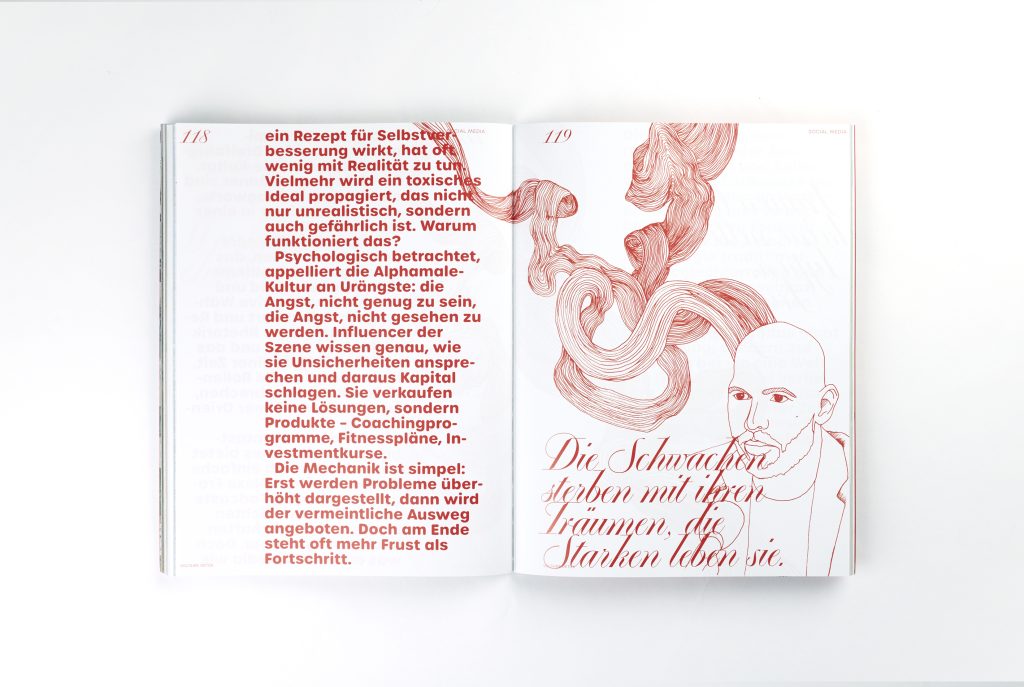 118
SOCIAL MEDIA
ein Rezept für Selbstver-
besserung wirkt, hat oft
wenig mit Realität zu tun.
Vielmehr wird ein toxisches
Ideal propagiert, das nicht
nur unrealistisch, sondern
auch gefährlich ist. Warum
funktioniert das?
Psychologisch betrachtet,
appelliert die Alphamale-
Kultur an Urängste: die
Angst, nicht genug zu sein,
die Angst, nicht gesehen zu
werden. Influencer der
Szene wissen genau, wie
sie Unsicherheiten anspre-
chen und daraus Kapital
schlagen. Sie verkaufen
keine Lösungen, sondern
Produkte – Coachingpro-
gramme, Fitnesspläne, In-
vestmentkurse.
Die Mechanik ist simpel:
Erst werden Probleme über-
höht dargestellt, dann wird
der vermeintliche Ausweg
angeboten. Doch am Ende
steht oft mehr Frust als
Fortschritt.
119
SOCIAL MEDIA
Die Schwachen
sterben mit ihren
Träumen, die
Starken leben sie.